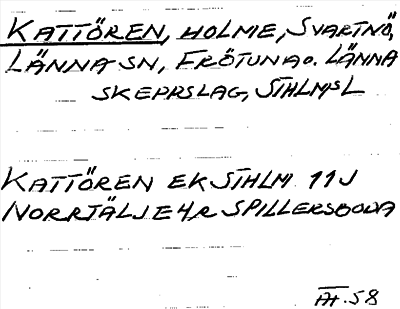 KATTÖREN, HOLME, SVARTNÖ,
LÄNNA SN, FRÖTUNA O. LÄNNA
SKEPPSLAG, STHLMS L
KATTÖREN EK STHLM 11J
NORRTÄLJE 4R SPILLERSBODA
58